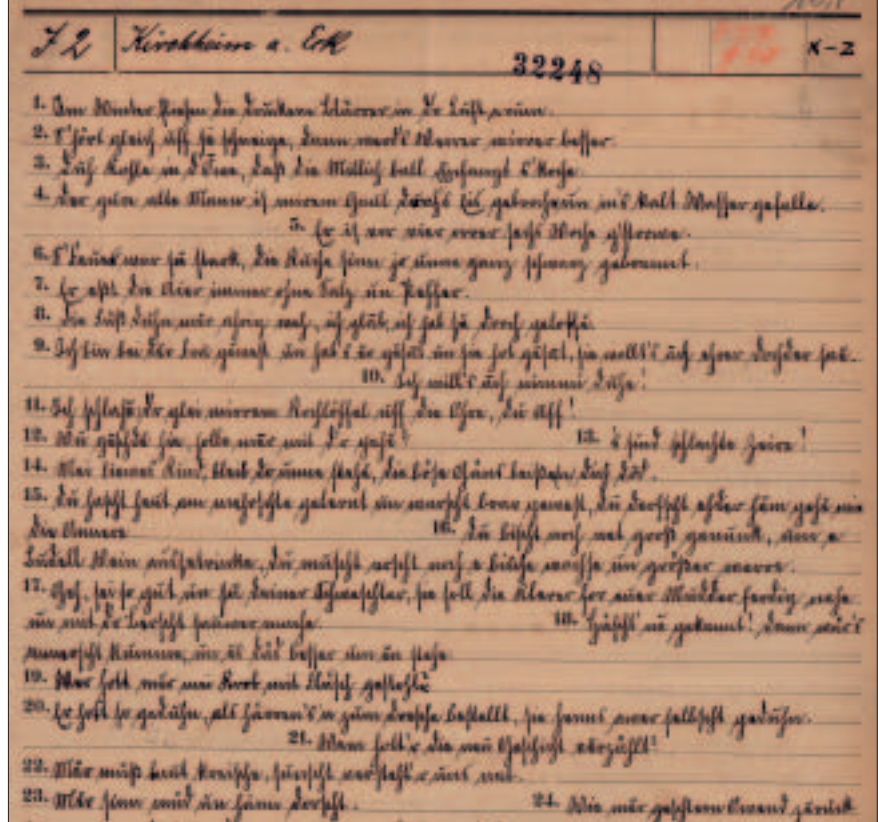 J 2 Kirchheim a. Eck
32248 X-Z
1. Am Winter fliehen die druckene blärrer in dr Luft
2. S'hört gleich uff se schneige, dann werd's Werrer wirrer besser.
3. Duh Kohle in d'Owe, daß die Millich ball kocht.
4. Der gure alte Mann is mirem Gaul dorch's Eis gebroche un in's kalt Wasser gefalle.
5. Er is vor vier orrer sechs Woche g'storwe.
6. S'Feuer war zu stark, die Kuche sinn jo unne ganz schwarz gebrannt.
7. Er eßt die Aier immer ohne Salz un Peffer.
8. Die Füß duhn mir weh, ich glab, ich hab se dorch geloffe.
9. Ich bin bei der Fra gewest un hab's er gsaat un sie hot gsaat, sie wollt's ach ehrer Dochder saa.
10. Ich will's ach nimmi duhe!
11. Ich schlach dr glei mirrem Kochlöffel uff die Ohre, du Aff!
12. Wu gehscht hin, solle mir mit dr gehe?
13. 's sind schlechte Zeire!
14. Mei liewes Kind, bleib do unne stehe, die böse Gäns beißen dich dod.
15. Du hascht heut am mehrschte gelernt un warscht brav gewest, du derfscht ehder häm gehe wie
die Annere
16. Du bischt noch net groß genunk, um e
Buddell Wein auszetrinke, du muscht erscht noch e bische wachse un größer werre.
17. Geh, sei so gut un sa deiner Schweschter, sie soll die Klerer for eier Mudder ferdig nehe
un mit dr Berscht sauwer mache
18. Häscht'n gekennt! dann wär's
annerscht kumme, un es däd besser um en stehe
19. Wer hott mir mei Korb mit Fläsch gestohle
20. Er hott so geduhn, als härren's'n zum dresche bestellt, sie henns awer selbscht geduhn.
21. Wem hott'r die neu Geschicht verzählt?
22. Mär muß laut kreische, sunscht versteht'r uns net.
23. Mär sinn müd un häwe dorscht.
24. Wie mir geschtern Owend zurück